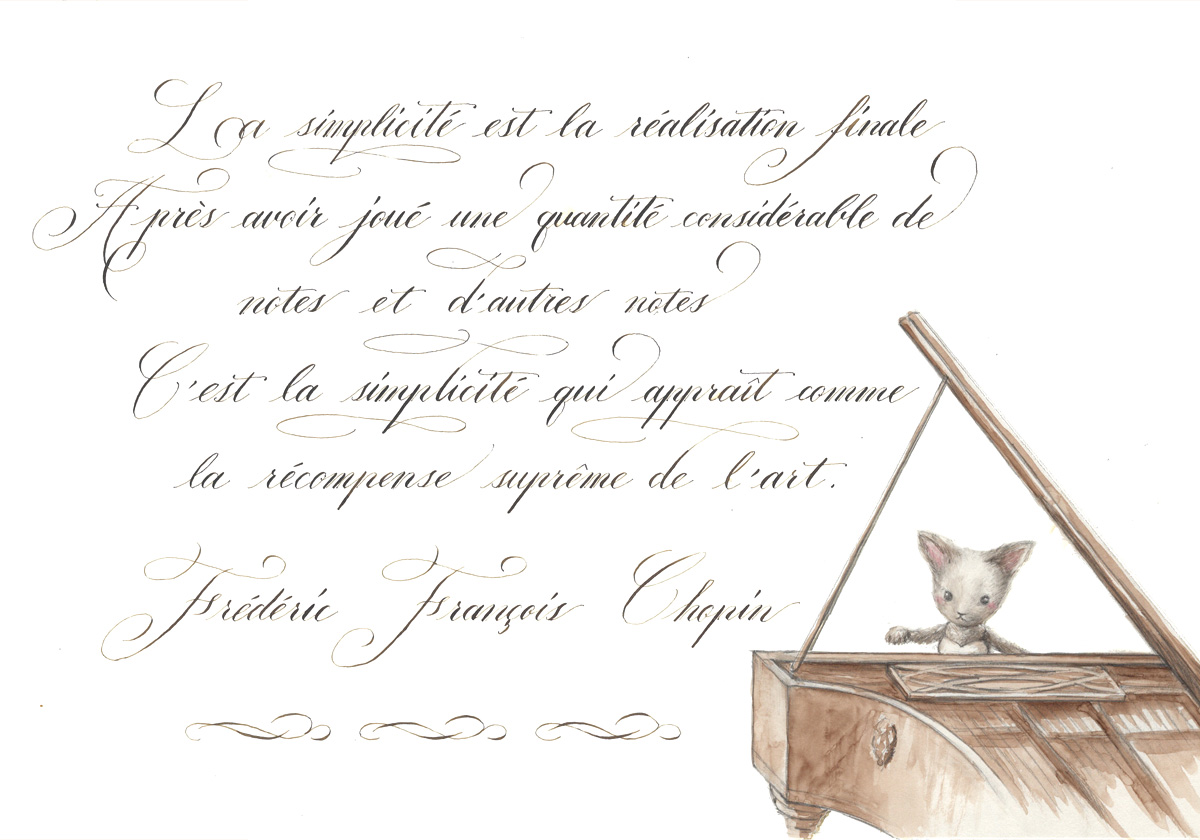 La simplicité est la réalisation finale
Après avoir joué une quantité considérable de
notes et d'autres notes
C'est la simplicité qui appraît comme
la récompense suprême de l'art.
Frédéric François Chopin